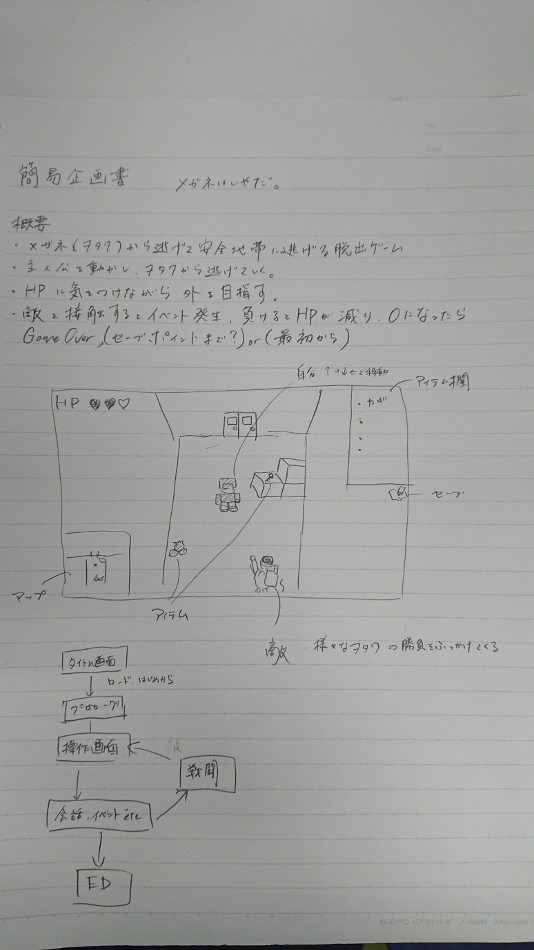 簡易企画書 メガネはいやだ。
概要
・メガネ(ヲタク)から逃げて安全地帯に逃げる脱出ゲーム
・主人公を動かし、ヲタクから逃げていく。
・HPに気をつけながら外を目指す。
・敵と接触するとイベント発生、負けるとHPが減り、0になったら
Game Over,(セーブポイントまで?)or(最初から)
自分 ↑→↓←で移動
アイテム欄
HP
・カギ
セーブ
マップ
アイテム
敵 様々なヲタクの勝負をふっかけてくる
タイトル画面
ロード、はじめから
プロローグ
操作画面
戦闘
会話、イベントetc
ED